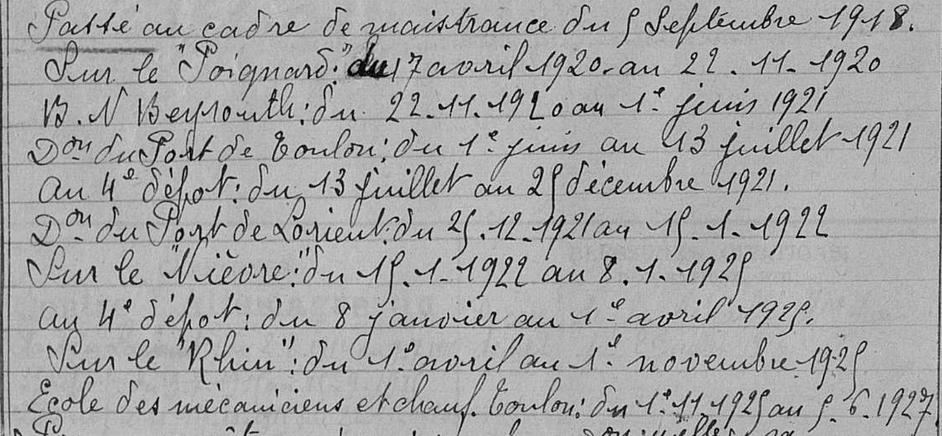 Passé au cadre de maistrance du 5 Septembre 1918.
Sur le "Poignard": du 17 avril 1920 au 22.11.1920
B. N Beyrouth: du 22.11.1920 au 1e juin 1921
Don du Port de Toulon: du 1e juin au 13 juillet 1921
au 4e dépot: du 13 juillet au 25 décembre 1921.
Don du Port de Lorient: du 25.12.1921 au 15.1.1922
Sur le "Nièvre": du 15.1.1922 au 8.1.1925
au 4e dépot: du 8 janvier au 1e avril 1925.
Sur le "Rhin": du 1e avril au 1e novembre 1925
Ecole des mécaniciens et chauf. Toulon: du 1e.11.1925 au 5.6.1927